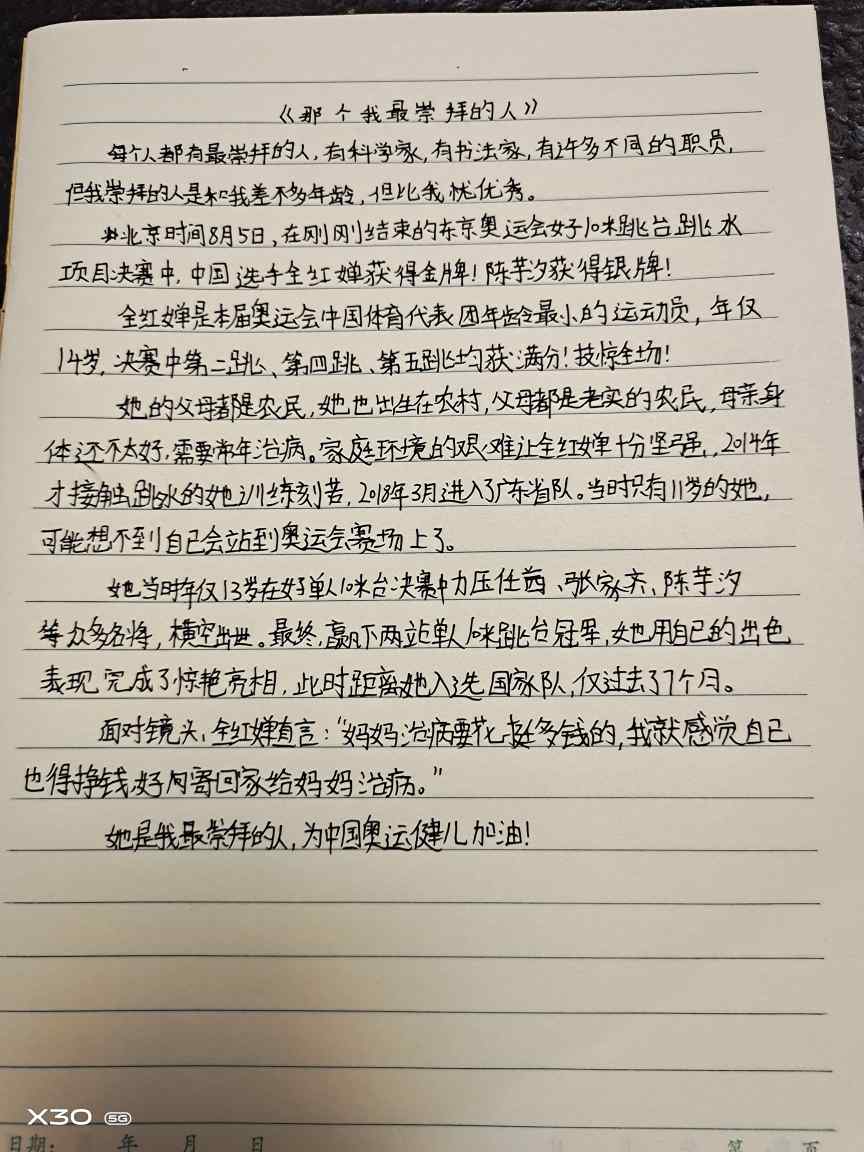 《那个我最崇拜的人》
每个人都有最崇拜的人,有科学家,有书法家,有许多不同的职员,
但我崇拜的人是和我差不多年龄,但比我优秀。
北京时间8月5日,在刚刚结束的东京奥运会女子10米跳台跳水
项目决赛中,中国选手全红婵获得金牌!陈芋汐获得银牌!
全红婵是本届奥运会中国体育代表团年龄最小的运动员,年仅
14岁,决赛中第二跳、第四跳、第五跳均获满分!技惊全场!
她的父母都是农民,她也出生在农村,父母都是老实的农民,母亲身
体还不太好,需要常年治病。家庭环境的艰难让全红婵十分坚强,,2014年
才接触跳水的她训练刻苦,2018年3月进入了广东省队。当时只有11岁的她,
可能想不到自己会站到奥运会赛场上了。
她当时年仅13岁在女子单人10米台决赛中力压任茜、张家齐、陈芋汐
等众多名将,横空出世。最终,赢下两站单人10米跳台冠军,她用自己的出色
表现完成了惊艳亮相,此时距离她入选国家队,仅过去了7个月。
面对镜头,全红婵直言:"妈妈治病要花挺多钱的,我就感觉自己
也得挣钱,好向寄回家给妈妈治病。"
她是我最崇拜的人,为中国奥运健儿加油!
X30 5G
日期: 年 月 日 第 页